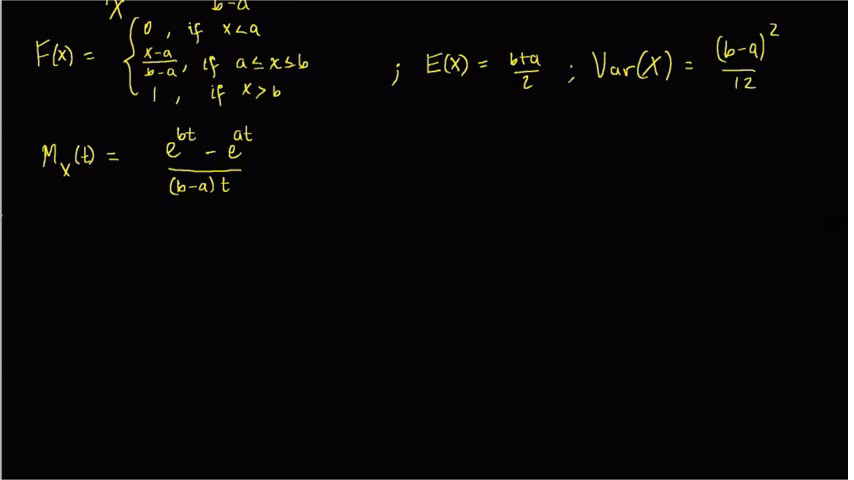 X b-a
F(x) = { 0 , if x<a
x-a/b-a, if a≤x≤b
1 , if x>b
; E(X) = b+a/2 ; Var(X) = (b-a)²/12
M_X(t) = e^bt - e^at / (b-a)t